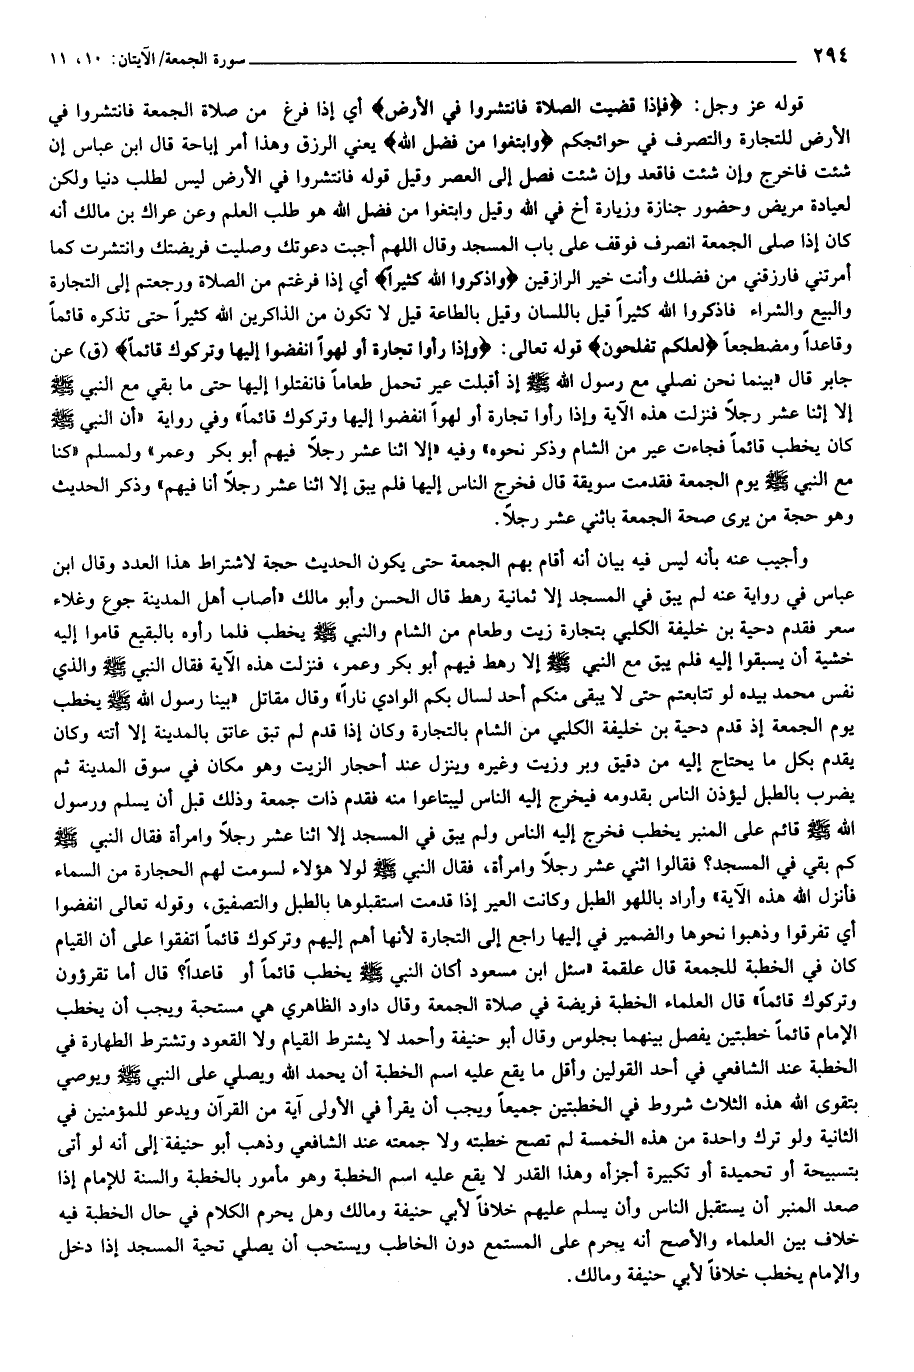 ٢٩٤ سورة الجمعة/ الآيتان: ١٠، ١١
قوله عز وجل: ﴿فإذا قضيت الصلاة فانتشروا في الأرض﴾ أي إذا فرغ من صلاة الجمعة فانتشروا في
الأرض للتجارة والتصرف في حوائجكم ﴿وابتغوا من فضل الله﴾ يعني الرزق وهذا أمر إباحة قال ابن عباس إن
شئت فاخرج وإن شئت فاقعد وإن شئت فصل إلى العصر وقيل قوله فانتشروا في الأرض ليس لطلب دنيا ولكن
لعيادة مريض وحضور جنازة وزيارة أخ في الله وقيل وابتغوا من فضل الله هو طلب العلم وعن عراك بن مالك أنه
كان إذا صلى الجمعة انصرف فوقف على باب المسجد وقال اللهم أجبت دعوتك وصليت فريضتك وانتشرت كما
أمرتني فارزقني من فضلك وأنت خير الرازقين ﴿واذكروا الله كثيراً﴾ أي إذا فرغتم من الصلاة ورجعتم إلى التجارة
والبيع والشراء فاذكروا الله كثيراً قيل باللسان وقيل بالطاعة قيل لا تكون من الذاكرين الله كثيراً حتى تذكره قائماً
وقاعداً ومضطجعاً ﴿لعلكم تفلحون﴾ قوله تعالى: ﴿وإذا رأوا تجارة أو لهواً انفضوا إليها وتركوك قائماً﴾ (ق) عن
جابر قال «بينما نحن نصلي مع رسول الله ﷺ إذ أقبلت عير تحمل طعاماً فانفتلوا إليها حتى ما بقي مع النبي ﷺ
إلا إثنا عشر رجلاً فنزلت هذه الآية وإذا رأوا تجارة أو لهواً انفضوا إليها وتركوك قائماً» وفي رواية «أن النبي ﷺ
كان يخطب قائماً فجاءت عير من الشام وذكر نحوه» وفيه «إلا اثنا عشر رجلاً فيهم أبو بكر وعمر» ولمسلم «كنا
مع النبي ﷺ يوم الجمعة فقدمت سويقة قال فخرج الناس إليها فلم يبق إلا اثنا عشر رجلاً أنا فيهم» وذكر الحديث
وهو حجة من يرى صحة الجمعة باثني عشر رجلاً.
وأجيب عنه بأنه ليس فيه بيان أنه أقام بهم الجمعة حتى يكون الحديث حجة لاشتراط هذا العدد وقال ابن
عباس في رواية عنه لم يبق في المسجد إلا ثمانية رهط قال الحسن وأبو مالك «أصاب أهل المدينة جوع وغلاء
سعر فقدم دحية بن خليفة الكلبي بتجارة زيت وطعام من الشام والنبي ﷺ يخطب فلما رأوه بالبقيع قاموا إليه
خشية أن يسبقوا إليه فلم يبق مع النبي ﷺ إلا رهط فيهم أبو بكر وعمر، فنزلت هذه الآية فقال النبي ﷺ والذي
نفس محمد بيده لو تتابعتم حتى لا يبقى منكم أحد لسال بكم الوادي ناراً» وقال مقاتل «بينا رسول الله ﷺ يخطب
يوم الجمعة إذ قدم دحية بن خليفة الكلبي من الشام بالتجارة وكان إذا قدم لم تبق عاتق بالمدينة إلا أتته وكان
يقدم بكل ما يحتاج إليه من دقيق وبر وزيت وغيره وينزل عند أحجار الزيت وهو مكان في سوق المدينة ثم
يضرب بالطبل ليؤذن الناس بقدومه فيخرج إليه الناس ليبتاعوا منه فقدم ذات جمعة وذلك قبل أن يسلم ورسول
الله ﷺ قائم على المنبر يخطب فخرج إليه الناس ولم يبق في المسجد إلا اثنا عشر رجلاً وامرأة فقال النبي ﷺ
كم بقي في المسجد؟ فقالوا اثني عشر رجلاً وامرأة، فقال النبي ﷺ لولا هؤلاء لسومت لهم الحجارة من السماء
فأنزل الله هذه الآية» وأراد باللهو الطبل وكانت العير إذا قدمت استقبلوها بالطبل والتصفيق، وقوله تعالى انفضوا
أي تفرقوا وذهبوا نحوها والضمير في إليها راجع إلى التجارة لأنها أهم إليهم وتركوك قائماً اتفقوا على أن القيام
كان في الخطبة للجمعة قال علقمة «سئل ابن مسعود أكان النبي ﷺ يخطب قائماً أو قاعداً؟ قال أما تقرؤون
وتركوك قائماً» قال العلماء الخطبة فريضة في صلاة الجمعة وقال داود الظاهري هي مستحبة ويجب أن يخطب
الإمام قائماً خطبتين يفصل بينهما بجلوس وقال أبو حنيفة وأحمد لا يشترط القيام ولا القعود وتشترط الطهارة في
الخطبة عند الشافعي في أحد القولين وأقل ما يقع عليه اسم الخطبة أن يحمد الله ويصلي على النبي ﷺ ويوصي
بتقوى الله هذه الثلاث شروط في الخطبتين جميعاً ويجب أن يقرأ في الأولى آية من القرآن ويدعو للمؤمنين في
الثانية ولو ترك واحدة من هذه الخمسة لم تصح خطبته ولا جمعته عند الشافعي وذهب أبو حنيفة إلى أنه لو أتى
بتسبيحة أو تحميدة أو تكبيرة أجزأه وهذا القدر لا يقع عليه اسم الخطبة وهو مأمور بالخطبة والسنة للإمام إذا
صعد المنبر أن يستقبل الناس وأن يسلم عليهم خلافاً لأبي حنيفة ومالك وهل يحرم الكلام في حال الخطبة فيه
خلاف بين العلماء والأصح أنه يحرم على المستمع دون الخاطب ويستحب أن يصلي تحية المسجد إذا دخل
والإمام يخطب خلافاً لأبي حنيفة ومالك.